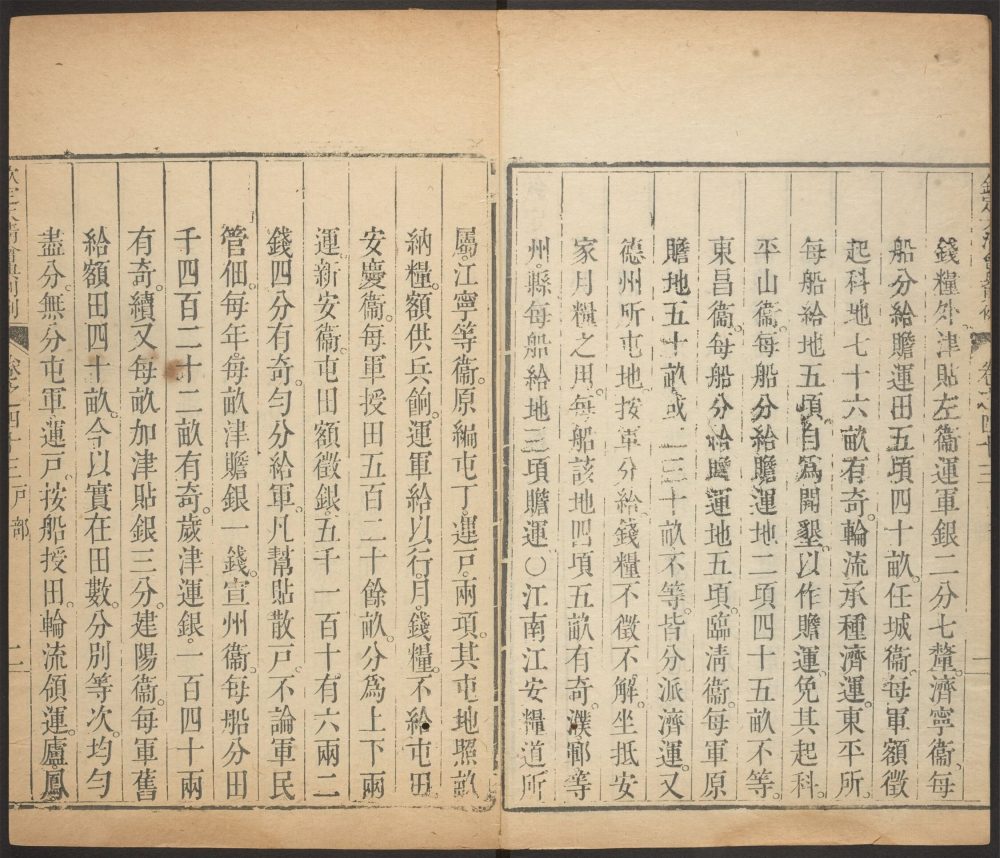 錢糧外。津貼左衞運軍銀二分七釐。濟寧衞。每
船分給贍運田五頃四十畝。任城衞。每軍額徵
起科地七十六畝有奇。輪流承種濟運。東平所。
每船給地五頃。自爲開墾。以作贍運。免其起科。
平山衞。每船分給贍運地二項四十五畝不等
東昌衞。每船分給贍運地五頃。臨淸衞。每軍原
贍地五十畝。或二三十畝不等。皆分派濟運。又
德州所屯地。按軍分給。錢糧不徵不解。坐抵安
家月糧之用。每船該地四頃五畝有奇。濮鄆等
州縣每船給地三頃贍運○江南江安糧道所
屬。江寧等衞。原編屯丁。運戸。兩項。其屯地照畝
納糧。額供兵餉。運軍給以行。月。錢糧。不給屯田。
安慶衞。每軍授田五百二十餘畝。分爲上下兩
運。新安衞。屯田額徵銀。五千一百十有六兩二
錢四分有奇。勻分給軍。凡幫貼散戸。不論軍民
管佃。每年。每畝津贍銀一錢。宣州衞。每船分田
千四百二十二畝有奇。歲津運銀。一百四十兩
有奇。續又每畝加津貼銀三分。建陽衞。每軍舊
給額田四十畝。今以實在田數。分別等次。均勻
盡分。無分屯軍運戸。按船授田。輪流領運。廬鳳
戸部
二